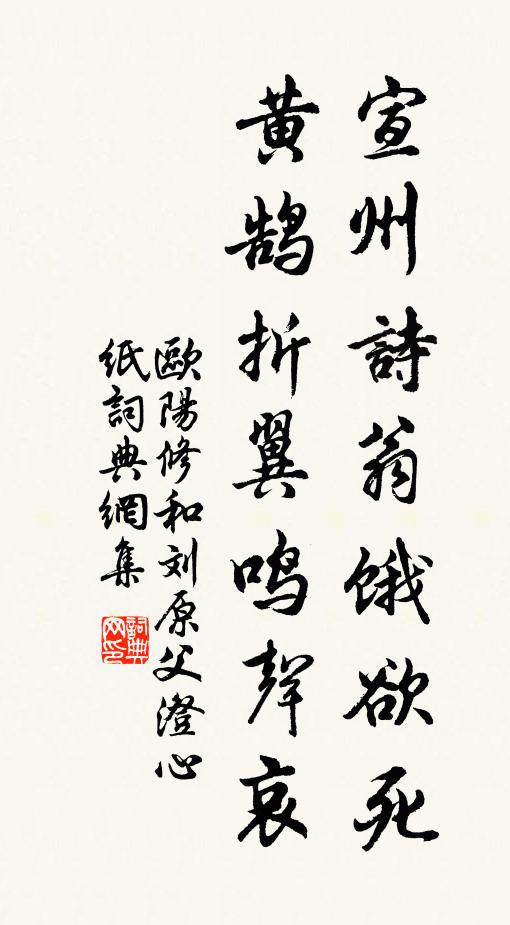 宣州詩翁餓欲死
黄鹄折翼鸣聲哀
歐陽修和刘原父澄心
纸詞典網集
詞典网印